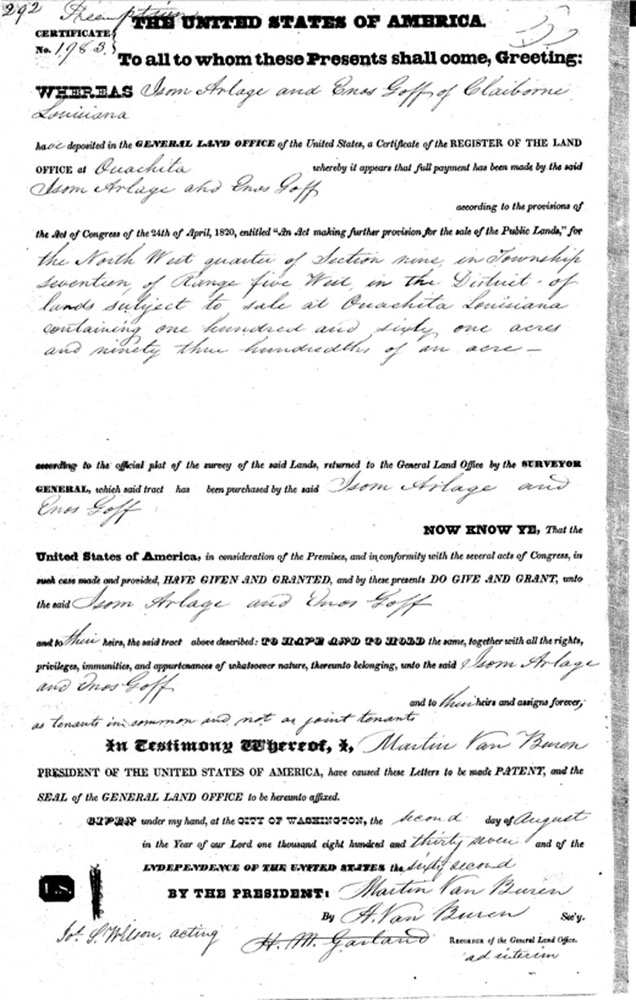 292 Preemption
THE UNITED STATES OF AMERICA.
CERTIFICATE
No. 1983.
To all to whom these Presents shall come, Greeting:
WHEREAS Isom Arlage and Enos Goff of Claiborne
Louisiana
have deposited in the GENERAL LAND OFFICE of the United States, a Certificate of the REGISTER OF THE LAND
OFFICE at Ouachita whereby it appears that full payment has been made by the said
Isom Arlage and Enos Goff
according to the provisions of
the Act of Congress of the 24th of April, 1820, entitled "An Act making further provision for the sale of the Public Lands," for
the North West quarter of Section nine, in Township
seventien, of Range five West, in the District of
lands subject to sale at Ouachita Louisiana
containing one hundred and sixty one acres
and ninety three hundredths of an acre —
according to the official plat of the survey of the said Lands, returned to the General Land Office by the SURVEYOR
GENERAL, which said tract has been purchased by the said Isom Arlage and
Enos Goff
NOW KNOW YE, That the
United States of America, in consideration of the Premises, and in conformity with the several acts of Congress, in
such case made and provided, HAVE GIVEN AND GRANTED, and by these presents DO GIVE AND GRANT, unto
the said Isom Arlage and Enos Goff
and to their heirs, the said tract above described: TO HAVE AND TO HOLD the same, together with all the rights,
privileges, immunities, and appurtenances of whatsoever nature, thereunto belonging, unto the said Isom Arlage
and Enos Goff
and to their heirs and assigns forever,
as tenants in common and not as joint tenants
In Testimony Whereof, I, Martin Van Buren
PRESIDENT OF THE UNITED STATES OF AMERICA, have caused these Letters to be made PATENT, and the
SEAL of the GENERAL LAND OFFICE to be hereunto affixed.
GIVEN under my hand, at the CITY OF WASHINGTON, the second day of August
in the Year of our Lord one thousand eight hundred and thirty seven and of the
INDEPENDENCE OF THE UNITED STATES the sixty second
L.S.
BY THE PRESIDENT: Martin Van Buren
By A. Van Buren Sec'y.
Jos. S. Wilson, acting H. M. Garland RECORDER of the General Land Office.
ad interim